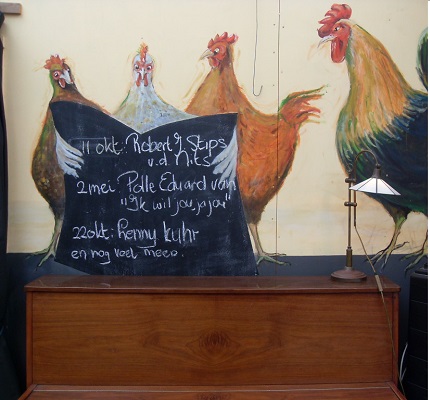 11 okt: Robert Jan Stips
v.d. Nits
2 mei: Polle Eduard van
"Ik wil jou, ja jou"
22 okt: Lenny Kuhr
en nog veel meer.